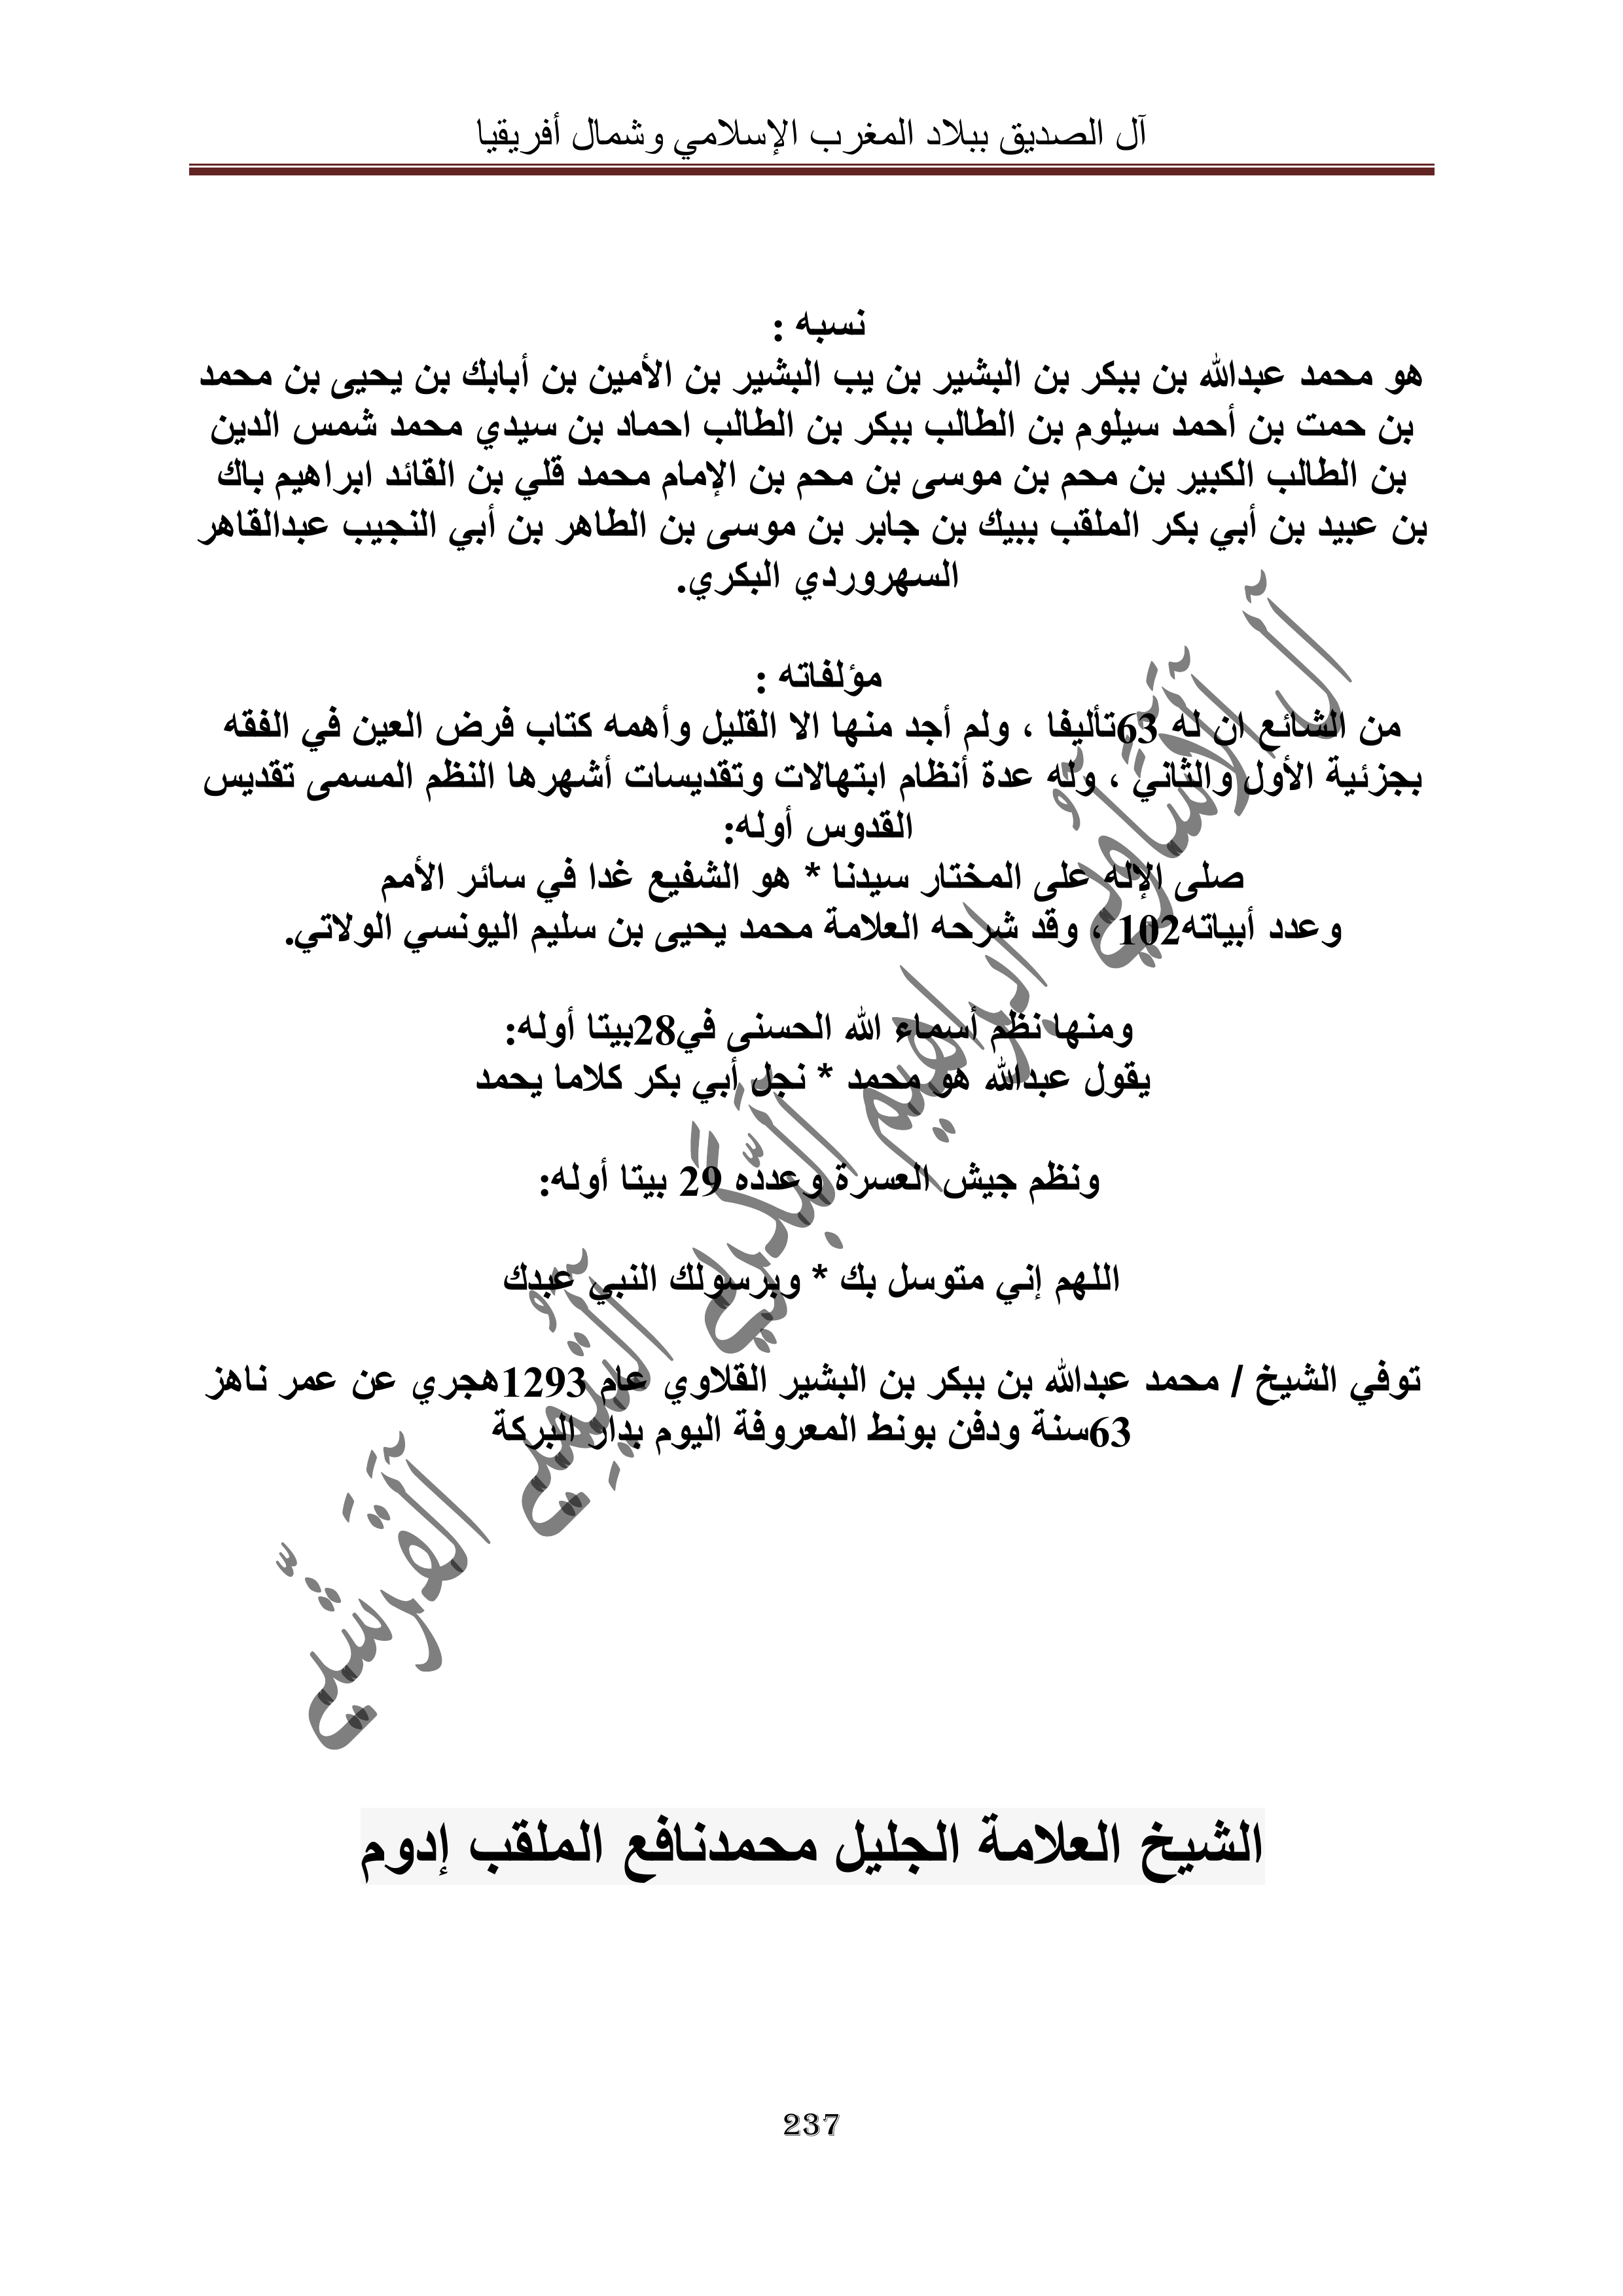 آل الصديق ببلاد المغرب الإسلامي وشمال أفريقيا
نسبه :
هو محمد عبدالله بن ببكر بن البشير بن يب البشير بن الأمين بن أبابك بن يحيى بن محمد
بن حمت بن أحمد سيلوم بن الطالب ببكر بن الطالب احماد بن سيدي محمد شمس الدين
بن الطالب الكبير بن محم بن موسى بن محم بن الإمام محمد قلي بن القائد ابراهيم باك
بن عبيد بن أبي بكر الملقب ببيك بن جابر بن موسى بن الطاهر بن أبي النجيب عبدالقاهر
السهروردي البكري.
مؤلفاته :
من الشائع ان له 63تأليفا ، ولم أجد منها الا القليل وأهمه كتاب فرض العين في الفقه
بجزئية الأول والثاني ، وله عدة أنظام ابتهالات وتقديسات أشهرها النظم المسمى تقديس
القدوس أوله:
صلى الإله على المختار سيدنا * هو الشفيع غدا في سائر الأمم
وعدد أبياته102 ، وقد شرحه العلامة محمد يحيى بن سليم اليونسي الولاتي.
ومنها نظم أسماء الله الحسنى في28بيتا أوله:
يقول عبدالله هو محمد * نجل أبي بكر كلاما يحمد
ونظم جيش العسرة وعدده 29 بيتا أوله:
اللهم إني متوسل بك * وبرسولك النبي عبدك
توفي الشيخ / محمد عبدالله بن ببكر بن البشير القلاوي عام 1293هجري عن عمر ناهز
63سنة ودفن بونط المعروفة اليوم بدار البركة
الشيخ العلامة الجليل محمدنافع الملقب إدوم
237